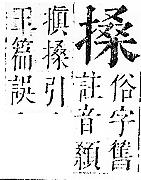 搡
俗字舊
註音顙
搷搡引
玉篇誤